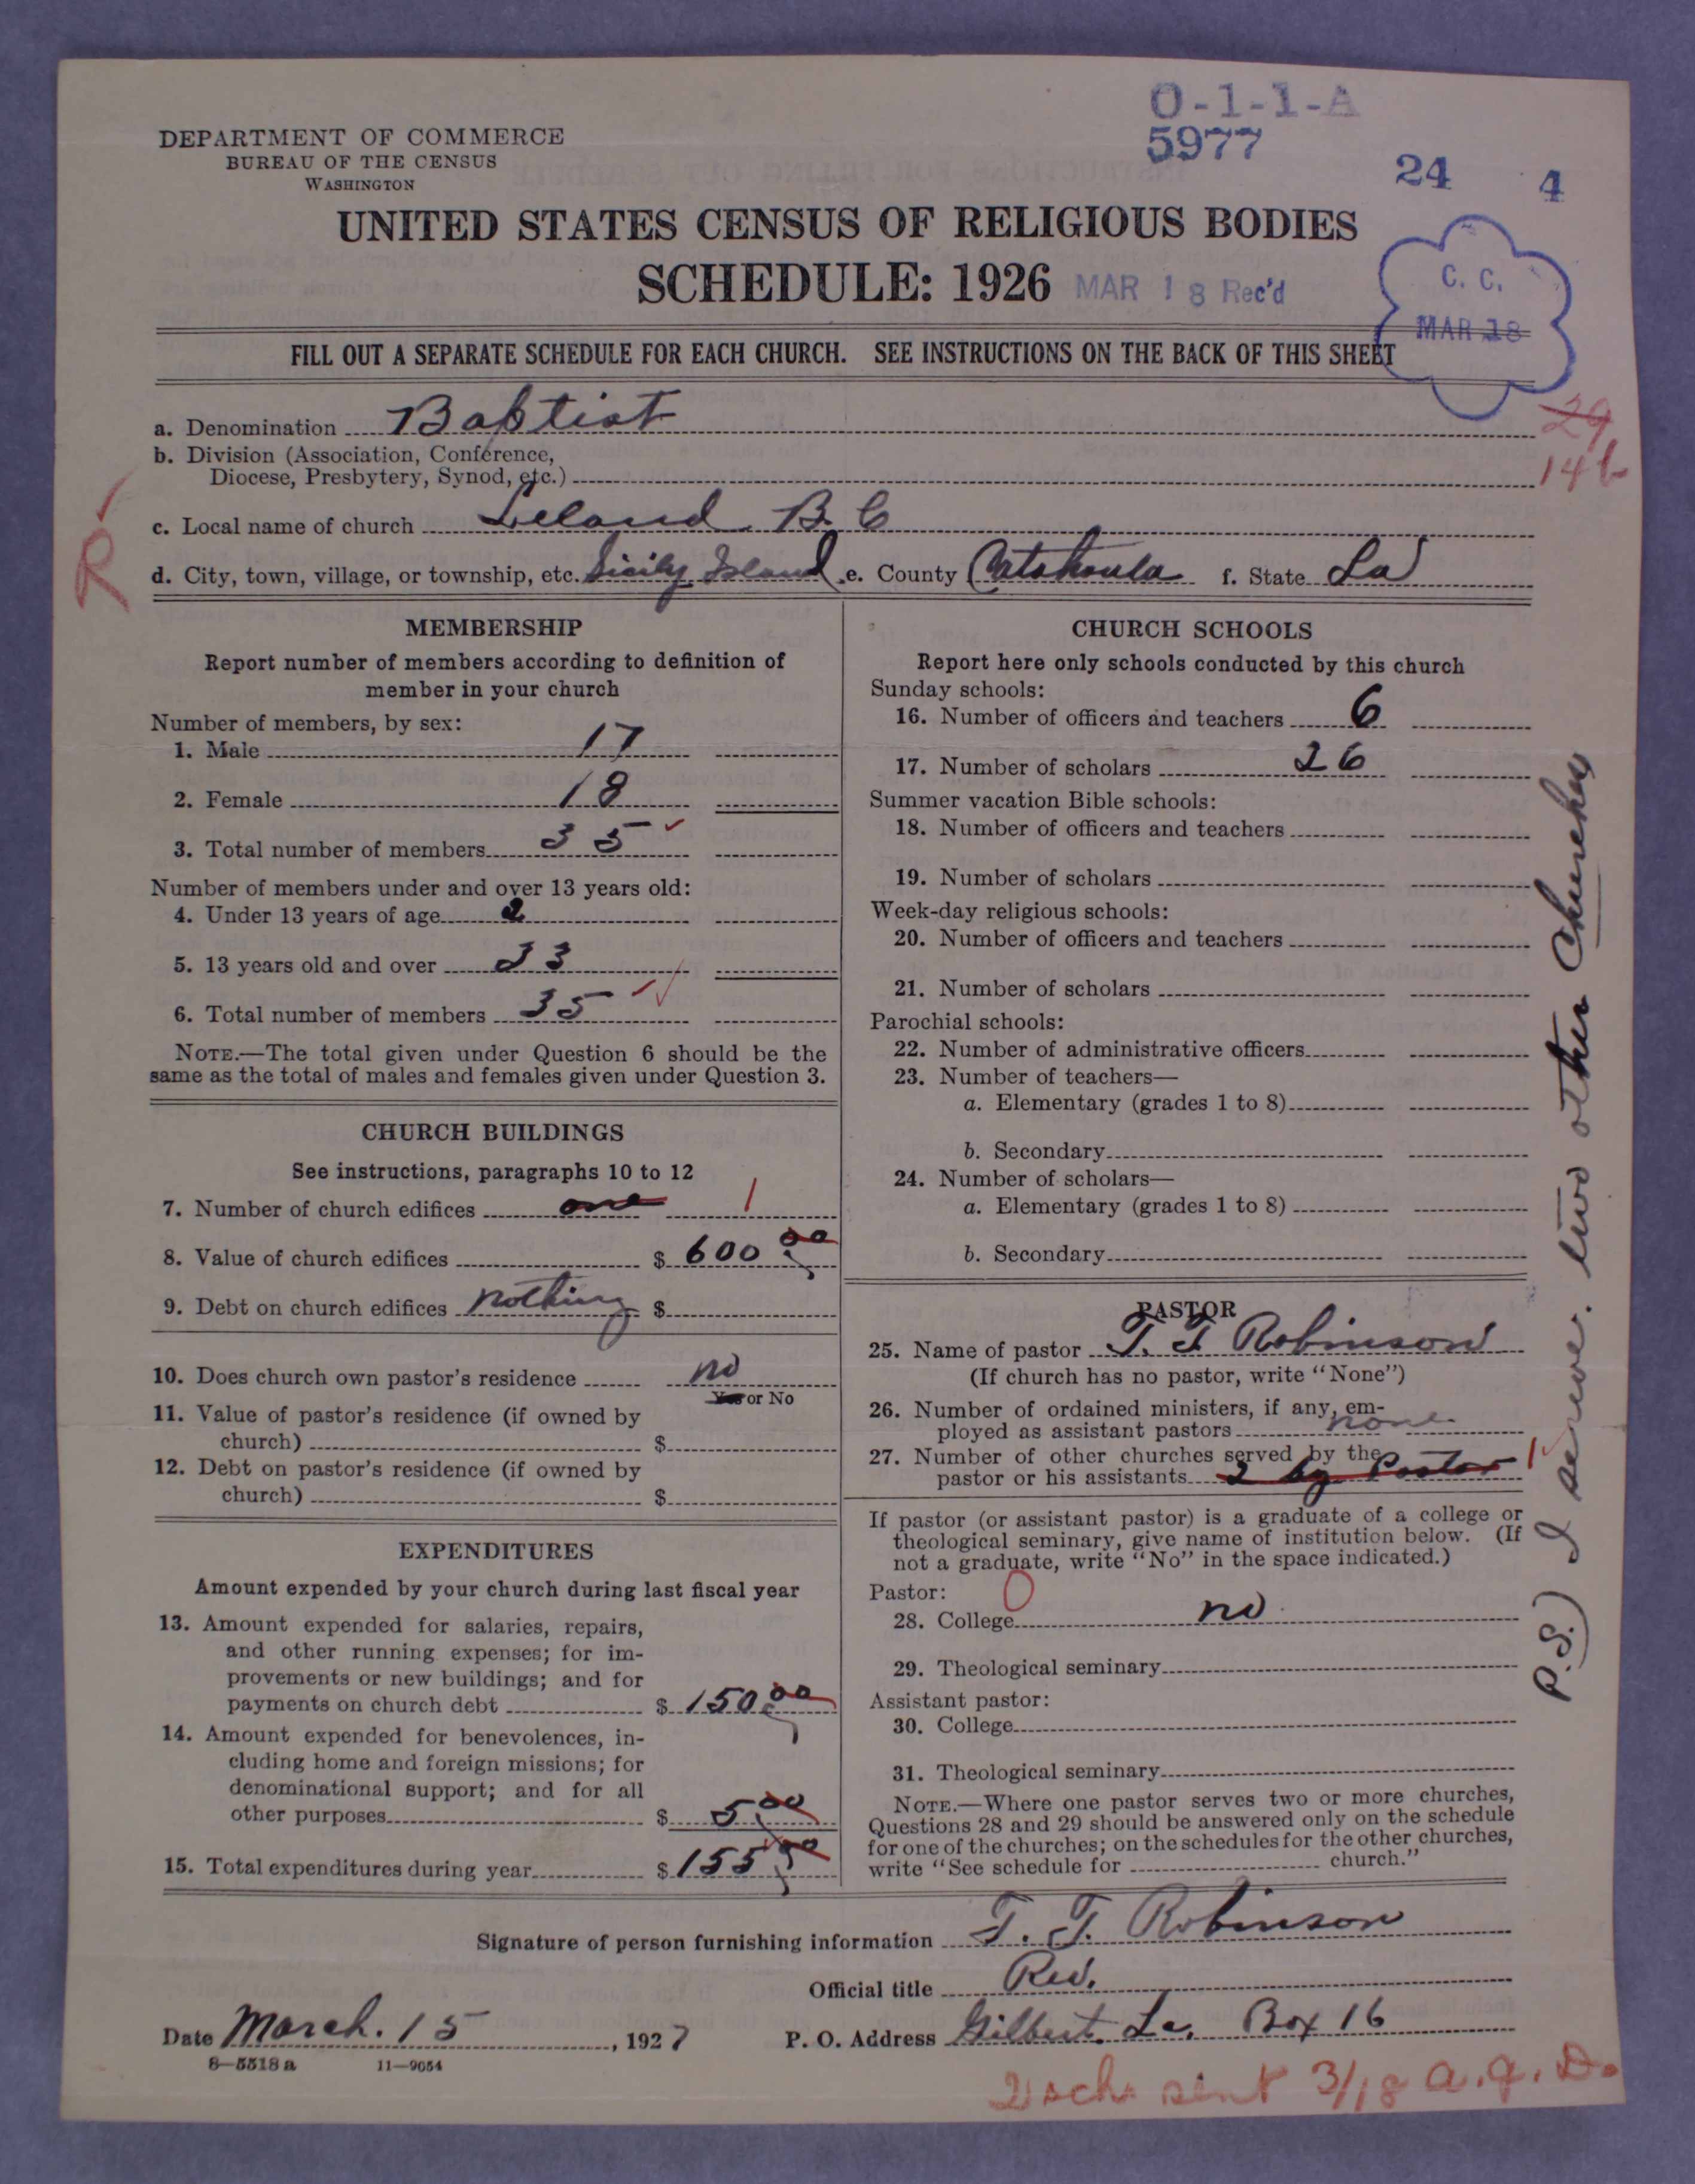 O-1-1-A
5977
24 4
DEPARTMENT OF COMMERCE
BUREAU OF THE CENSUS
WASHINGTON
UNITED STATES CENSUS OF RELIGIOUS BODIES
SCHEDULE: 1926 MAR 18 Rec'd
C. C.
MAR 18
FILL OUT A SEPARATE SCHEDULE FOR EACH CHURCH. SEE INSTRUCTIONS ON THE BACK OF THIS SHEET
a. Denomination Baptist
29
b. Division (Association, Conference,
Diocese, Presbytery, Synod, etc.)
14b
R
c. Local name of church Leland B. C
d. City, town, village, or township, etc. Sicily Island e. County Catahoula f. State La
MEMBERSHIP
Report number of members according to definition of
member in your church
Number of members, by sex:
1. Male 17
2. Female 18
3. Total number of members 35
Number of members under and over 13 years old:
4. Under 13 years of age 2
5. 13 years old and over 33
6. Total number of members 35
NOTE.—The total given under Question 6 should be the
same as the total of males and females given under Question 3.
CHURCH BUILDINGS
See instructions, paragraphs 10 to 12
7. Number of church edifices one 1
8. Value of church edifices $ 600 00
9. Debt on church edifices nothing $
10. Does church own pastor's residence no
Yes or No
11. Value of pastor's residence (if owned by
church) $
12. Debt on pastor's residence (if owned by
church) $
EXPENDITURES
Amount expended by your church during last fiscal year
13. Amount expended for salaries, repairs,
and other running expenses; for im-
provements or new buildings; and for
payments on church debt $ 150 00
14. Amount expended for benevolences, in-
cluding home and foreign missions; for
denominational support; and for all
other purposes $ 5 00
15. Total expenditures during year $ 155 00
CHURCH SCHOOLS
Report here only schools conducted by this church
Sunday schools:
16. Number of officers and teachers 6
17. Number of scholars 26
Summer vacation Bible schools:
18. Number of officers and teachers
19. Number of scholars
Week-day religious schools:
20. Number of officers and teachers
21. Number of scholars
Parochial schools:
22. Number of administrative officers
23. Number of teachers—
a. Elementary (grades 1 to 8)
b. Secondary
24. Number of scholars—
a. Elementary (grades 1 to 8)
b. Secondary
PASTOR
25. Name of pastor T. T Robinson
(If church has no pastor, write "None")
26. Number of ordained ministers, if any, em-
ployed as assistant pastors none
27. Number of other churches served by the
pastor or his assistants 2 by Pastor 1
If pastor (or assistant pastor) is a graduate of a college or
theological seminary, give name of institution below. (If
not a graduate, write "No" in the space indicated.)
Pastor: 0
28. College no
29. Theological seminary
Assistant pastor:
30. College
31. Theological seminary
NOTE.—Where one pastor serves two or more churches,
Questions 28 and 29 should be answered only on the schedule
for one of the churches; on the schedules for the other churches,
write "See schedule for church."
P.S.) I serve two other Churches
Signature of person furnishing information T. T. Robinson
Official title Rev.
Date March. 15, 1927 P. O. Address Gilbert La. Box 16
8—5518 a 11—9054
2 sch. sent 3/18 a.g.D.